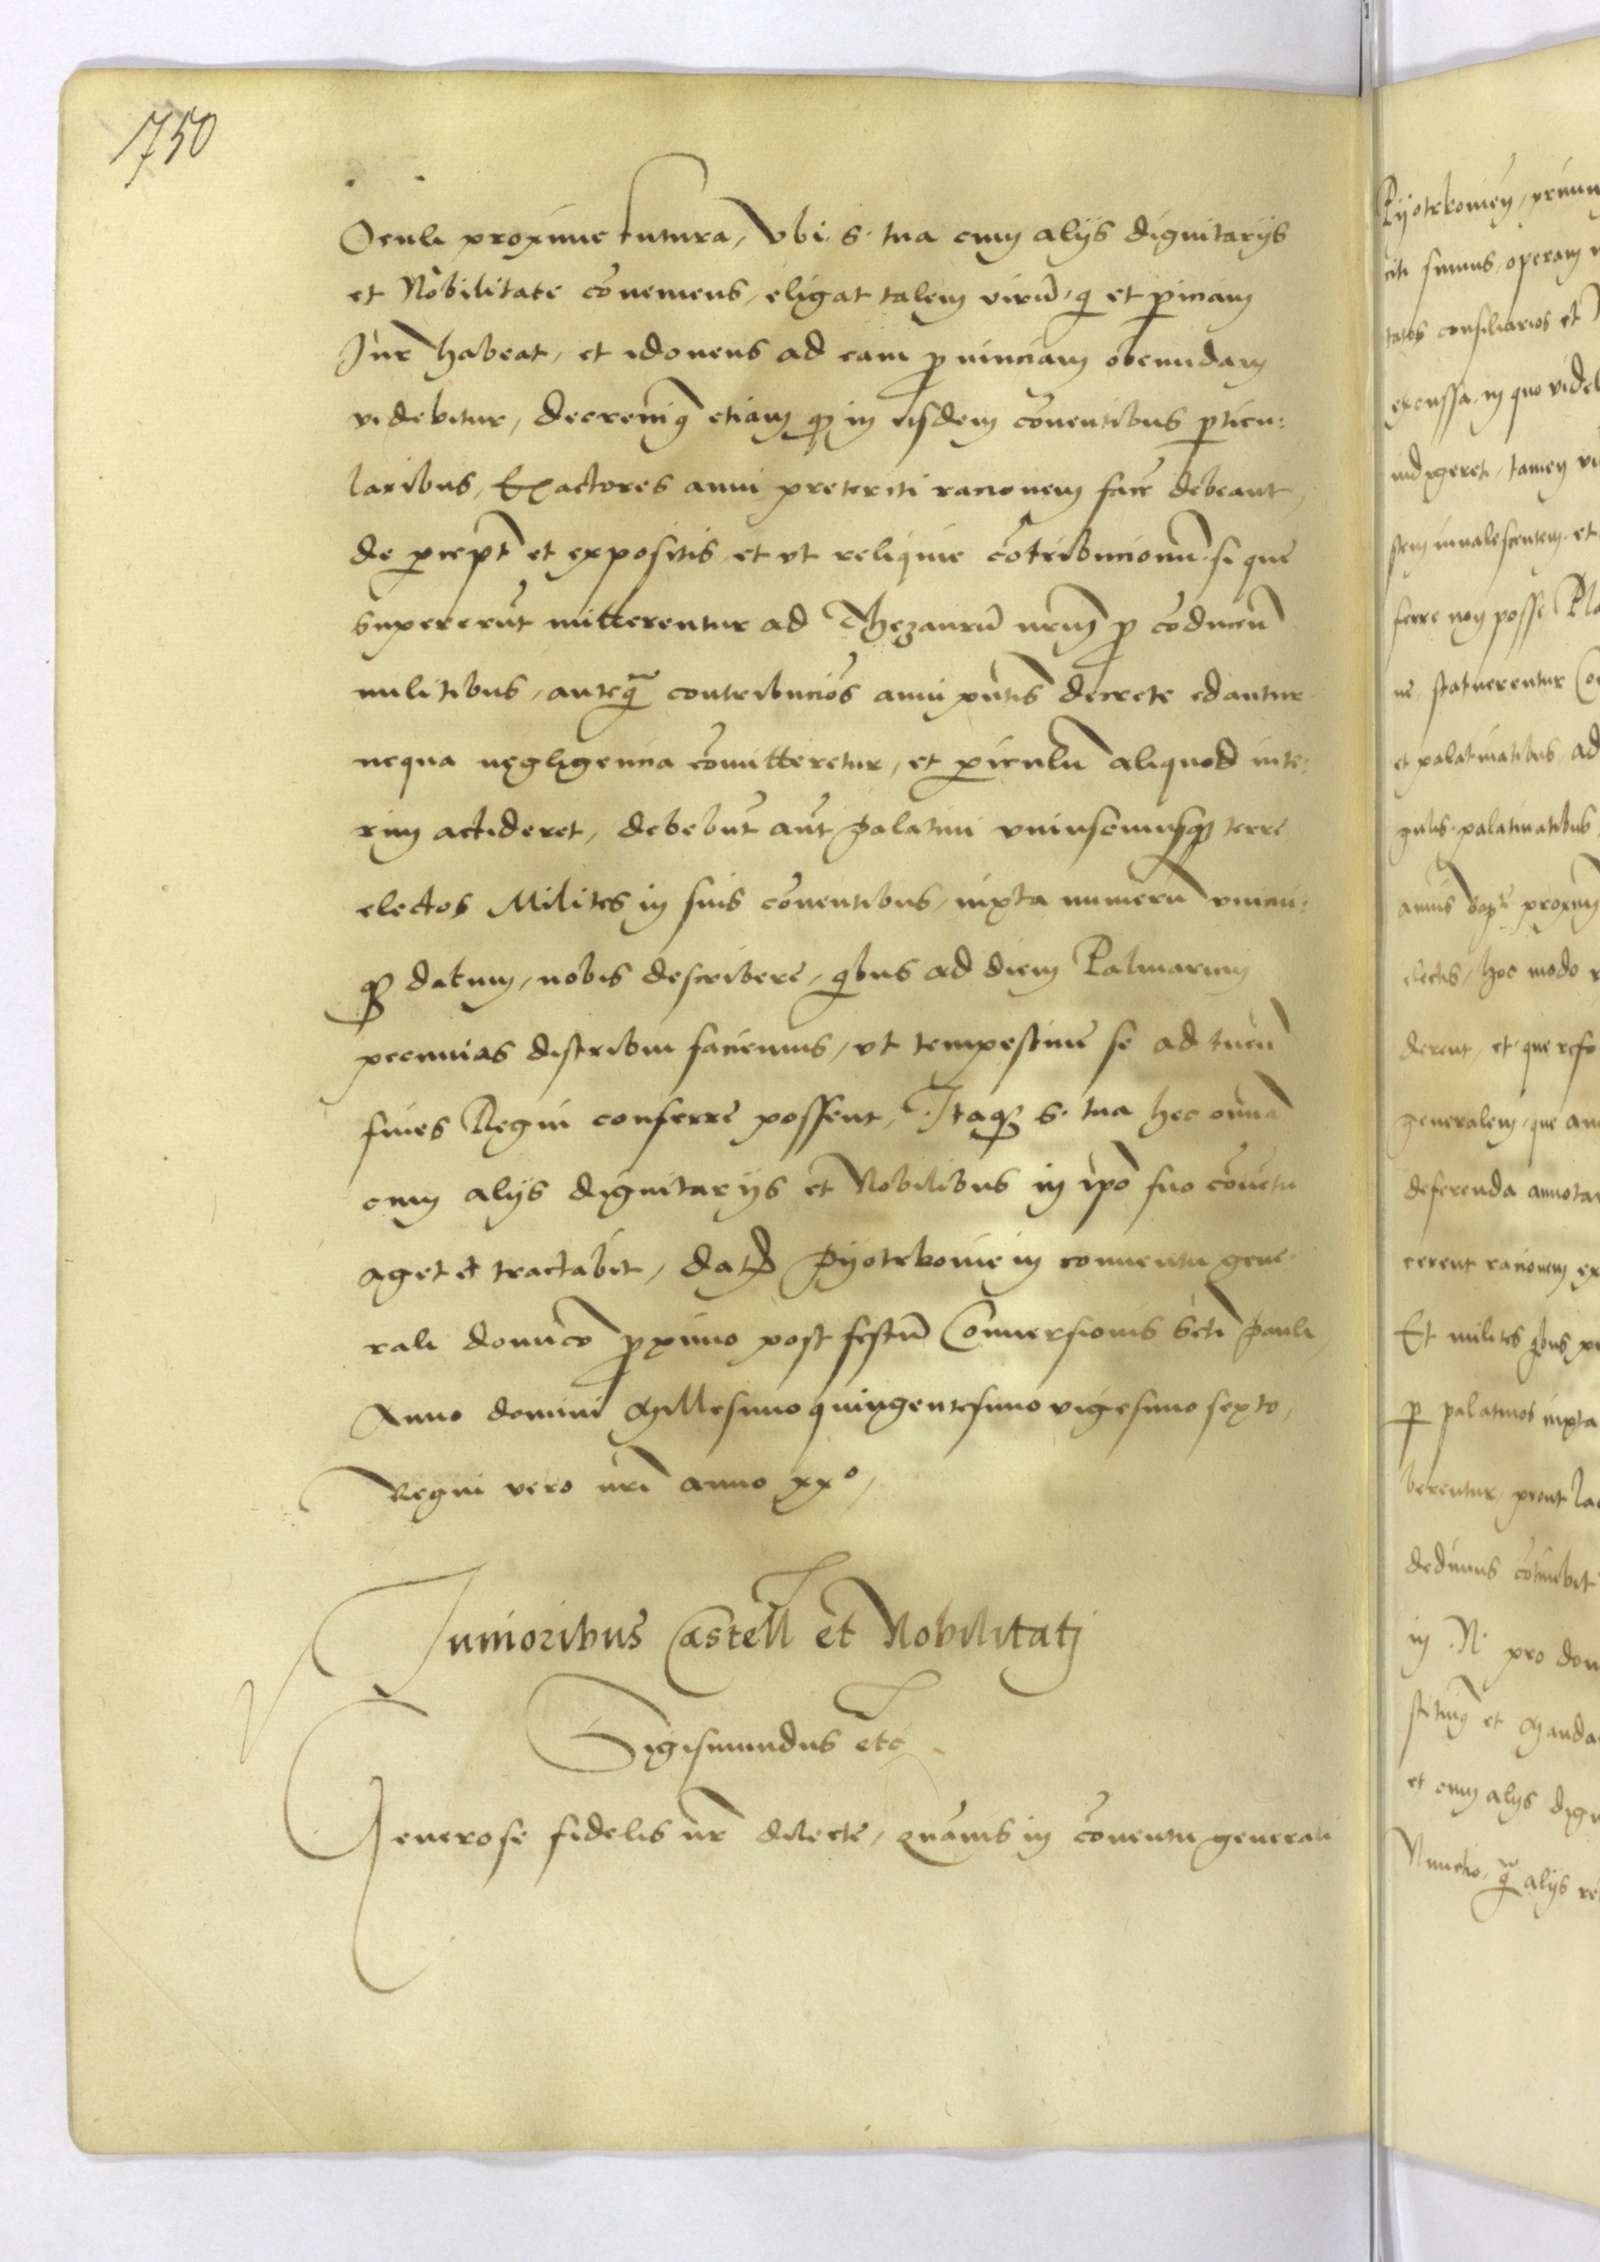 1750
Oculi proxime futura, Vbi. S. tua cum alijs dignitarijs
et Nobilitate cōueniens, eligat talem virū, qi et periciam
Jur̄ habeat, et idoneus ad eam prouinciam obeundam
videbitur, decreuimꝰ etiam qꝫ in eisdem cōuentibus perticu:
laribus, Exactores anni preteriti racionem facē debeant,
de perceptꝭ et expositis et vt reliquie cōtribucionū. si que
supererūt mitterentur ad Thezaurū nrūm pro cōducēn
militibus, anteqᷓ contribucioēs anni pn̄tis decrete edantur
nequa negligencia cōmitteretur, et periculū aliquod inte:
rim accideret, debebūt aūt palatini vniuscuiusqꝫ terre
electos Milites in suis cōuentibus, iuxta numerū vnicui:
qꝫ datum, nobis describere, qibus ad diem Palmarum
pecunias distribui faciemus, vt tempestiue se ad tuēn
fines Regni conferre possent, Itaqꝫ S. tua hec omnia
cum alijs dignitarijs et Nobilibus in ipō suo cōuētu
aget et tractabit, datꝭ Pyotrkouie in conuentu gene
rali dominico proximo post festū Conuersionis Scti Pauli
Anno domini Millesimo quingentesimo vigesimo sexto,
Regni vero nrī anno xxº,
Junioribus Castell et Nobilitatj
Sigismundus etc̄
Generose fidelis nr̄ dilecte, Quāuis in cōuentu generali
Pyotrkouien, primum
citi sumus, operam
tatos consiliarios et
excussa. in quo videl
indigeret, tamen
stem inualescentem. et
ferre non posse
ne statuerentur
et palatinatibus, ad
gulis palatinatibus
proxim
electis, hoc modo
derent, et que refe
generalem, que
deferenda annotar
cerent racionem ex
Et milites qibus
per palatinos iuxta
berentur, prout
dedimus
in .N. pro
et Manda
et cum alijs dign
Nuncio, alijs